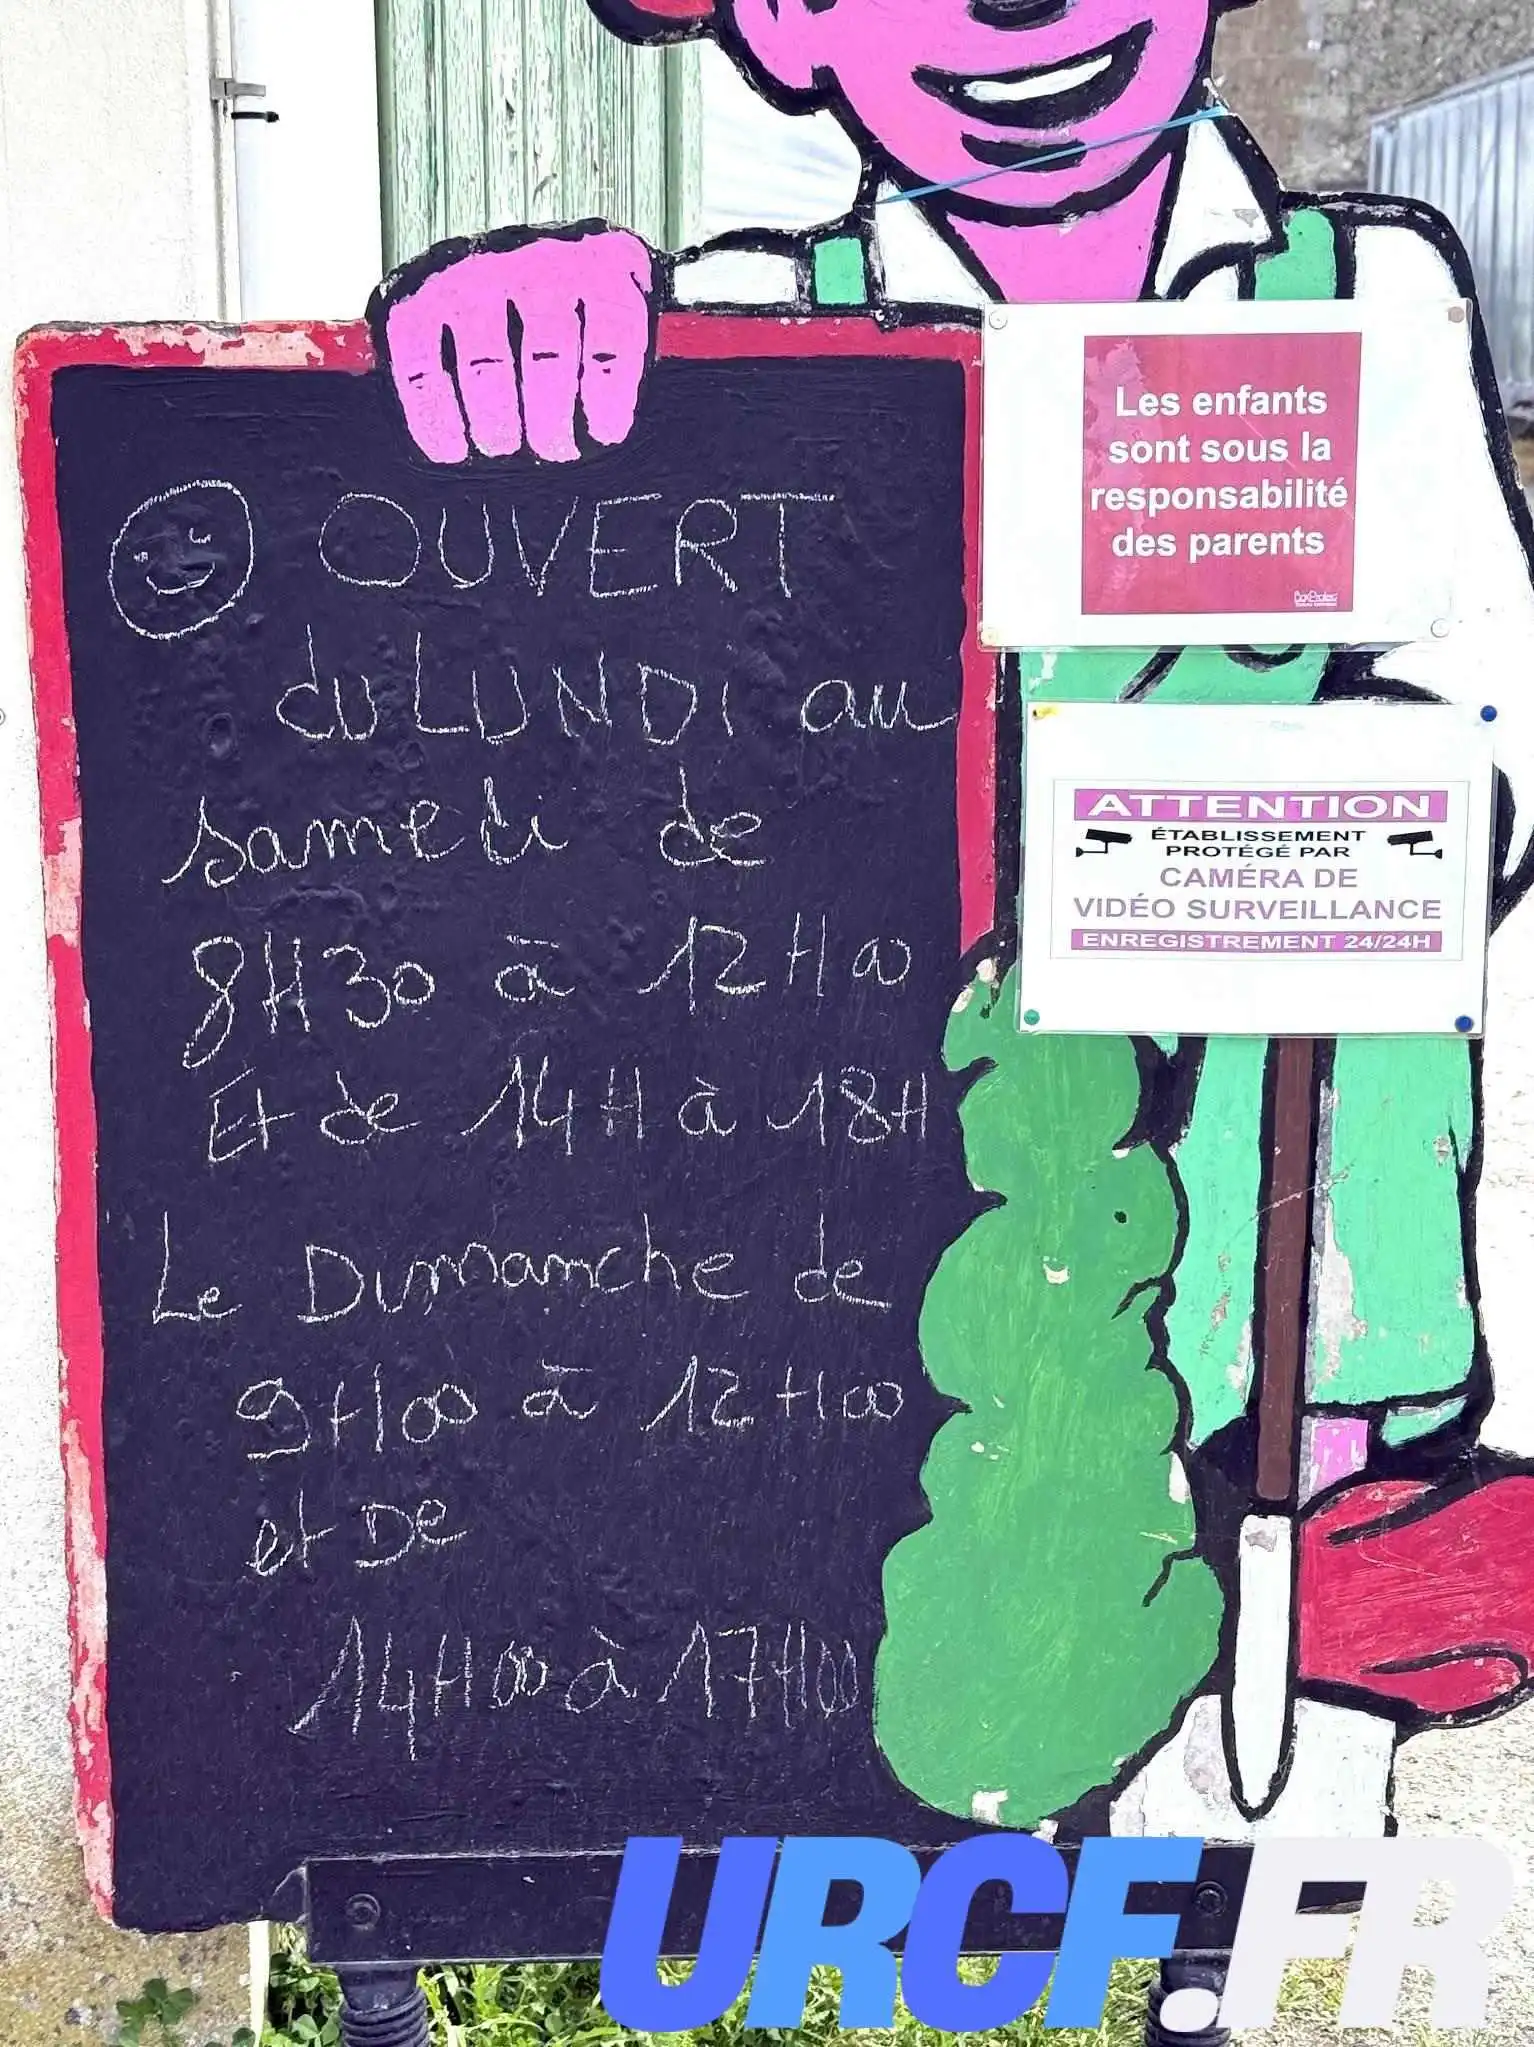 OUVERT
du LUNDi au
samedi de
8H30 à 12H00
Et de 14H à 18H
Le Dimanche de
9H00 à 12H00
et De
14H00 à 17H00
Les enfants
sont sous la
responsabilité
des parents
ATTENTION
ÉTABLISSEMENT
PROTÉGÉ PAR
CAMÉRA DE
VIDÉO SURVEILLANCE
ENREGISTREMENT 24/24H
URCF.FR